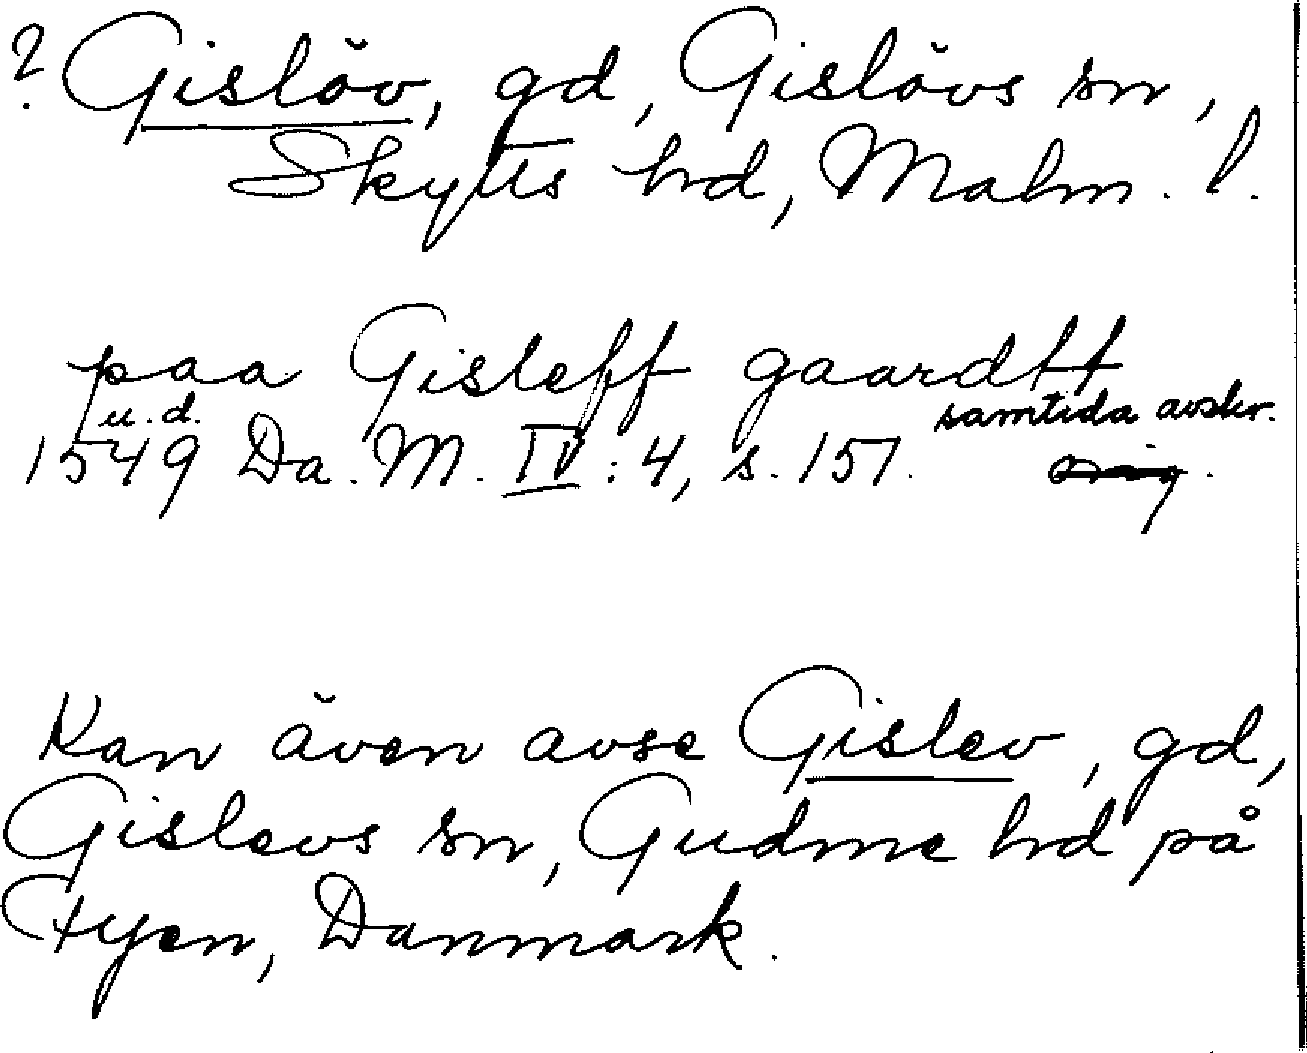 ? Gislöv, gd, Gislövs sn,
Skytts hd, Malm. l.
paa Gisleff gaardtt
u. d. samtida avskr.
1549 Da. M. IV: 4, s. 151.
Kan även avse Gislev, gd,
Gislevs sn, Gudme hd på
Fyen, Danmark.